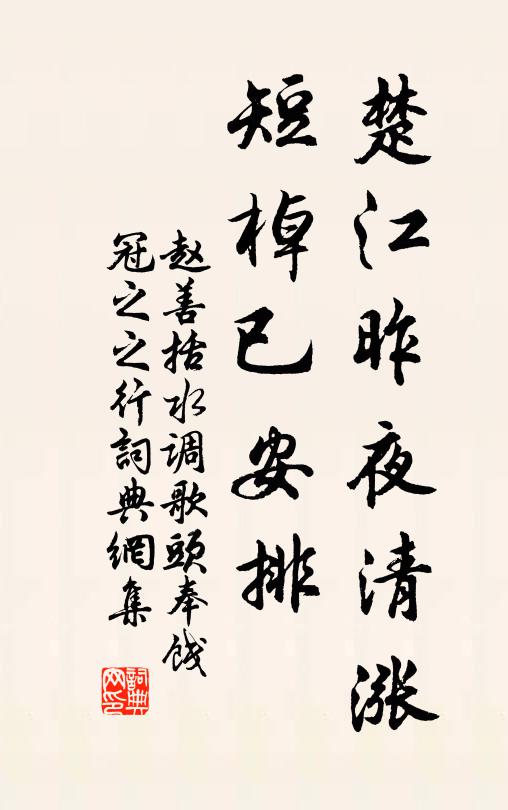 楚江昨夜清涨
短棹已安排
赵善括水调歌头奉饯
冠之之行詞典網集
詞典网印